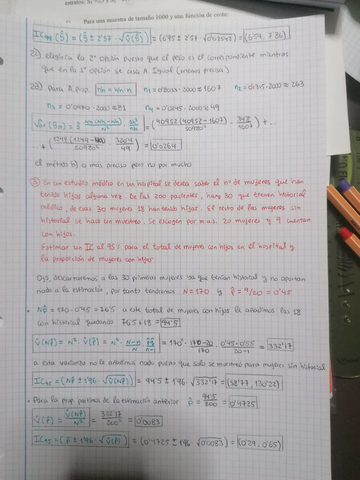 Para una muestra de tamaño 2000 y una función de coste
IC₉₉ (Ĉ) = (Ĉ ± 2'57 · √V̂(Ĉ)) = (6'95 ± 2'57 · √0'02543) = (6'54, 7'36)
2.1) elegiría la 2ª opción puesto que el peso es el correspondiente mientras
que en la 1ª opción se usa A. Igual (menos precisa)
2.2) Para A. prop.
n₃ = 0'0410 · 2000 ≈ 83
el método b) es más preciso pero no por mucho
③ En un estudio médico en un hospital se desea saber el nº de mujeres que han
tenido hijos alguna vez. De las 200 pacientes, hay 30 que tenían historial
médico, de esas 30 mujeres 18 han tenido hijos. El resto de las mujeres sin
historial se hace un muestreo. Se escogen por m.a.s. 20 mujeres y 9 cuentan
con hijos.
Estimar un IC al 95% para el total de mujeres con hijos en el hospital y
la proporción de mujeres con hijos
Ojo, descartaremos a las 30 primeras mujeres ya que tenían historial y no aportan
nada a la estimación, por tanto tendríamos N = 170 y p̂ = 9/20 = 0'45
• Np̂ = 170 · 0'45 = 76'5 a este total de mujeres con hijos le añadimos las 18
con historial quedando 76'5 + 18 = 94'5
V̂(Np̂) = N² · V̂(p̂) = N² · N-n/N · p̂q̂/n-1 = 170² · 170-20/170 · 0'45·0'55/20-1 = 332'17
a esta varianza no le añadimos nada puesto que solo se muestreó para mujeres sin historial
IC₉₅ = (Np̂ ± 1'96 · √V̂(Np̂)) = 94'5 ± 1'96 √332'17 = (58'77, 130'22)
• Para la prop. partimos de la estimación anterior p̂ = 94'5/200 = 0'4725
V̂(p̂) = V̂(Np̂)/N² = 332'17/200² = 0'0083
IC₉₅ = (p̂ ± 1'96 · √V̂(p̂)) = (0'4725 ± 1'96 · √0'0083) = (0'29, 0'65)